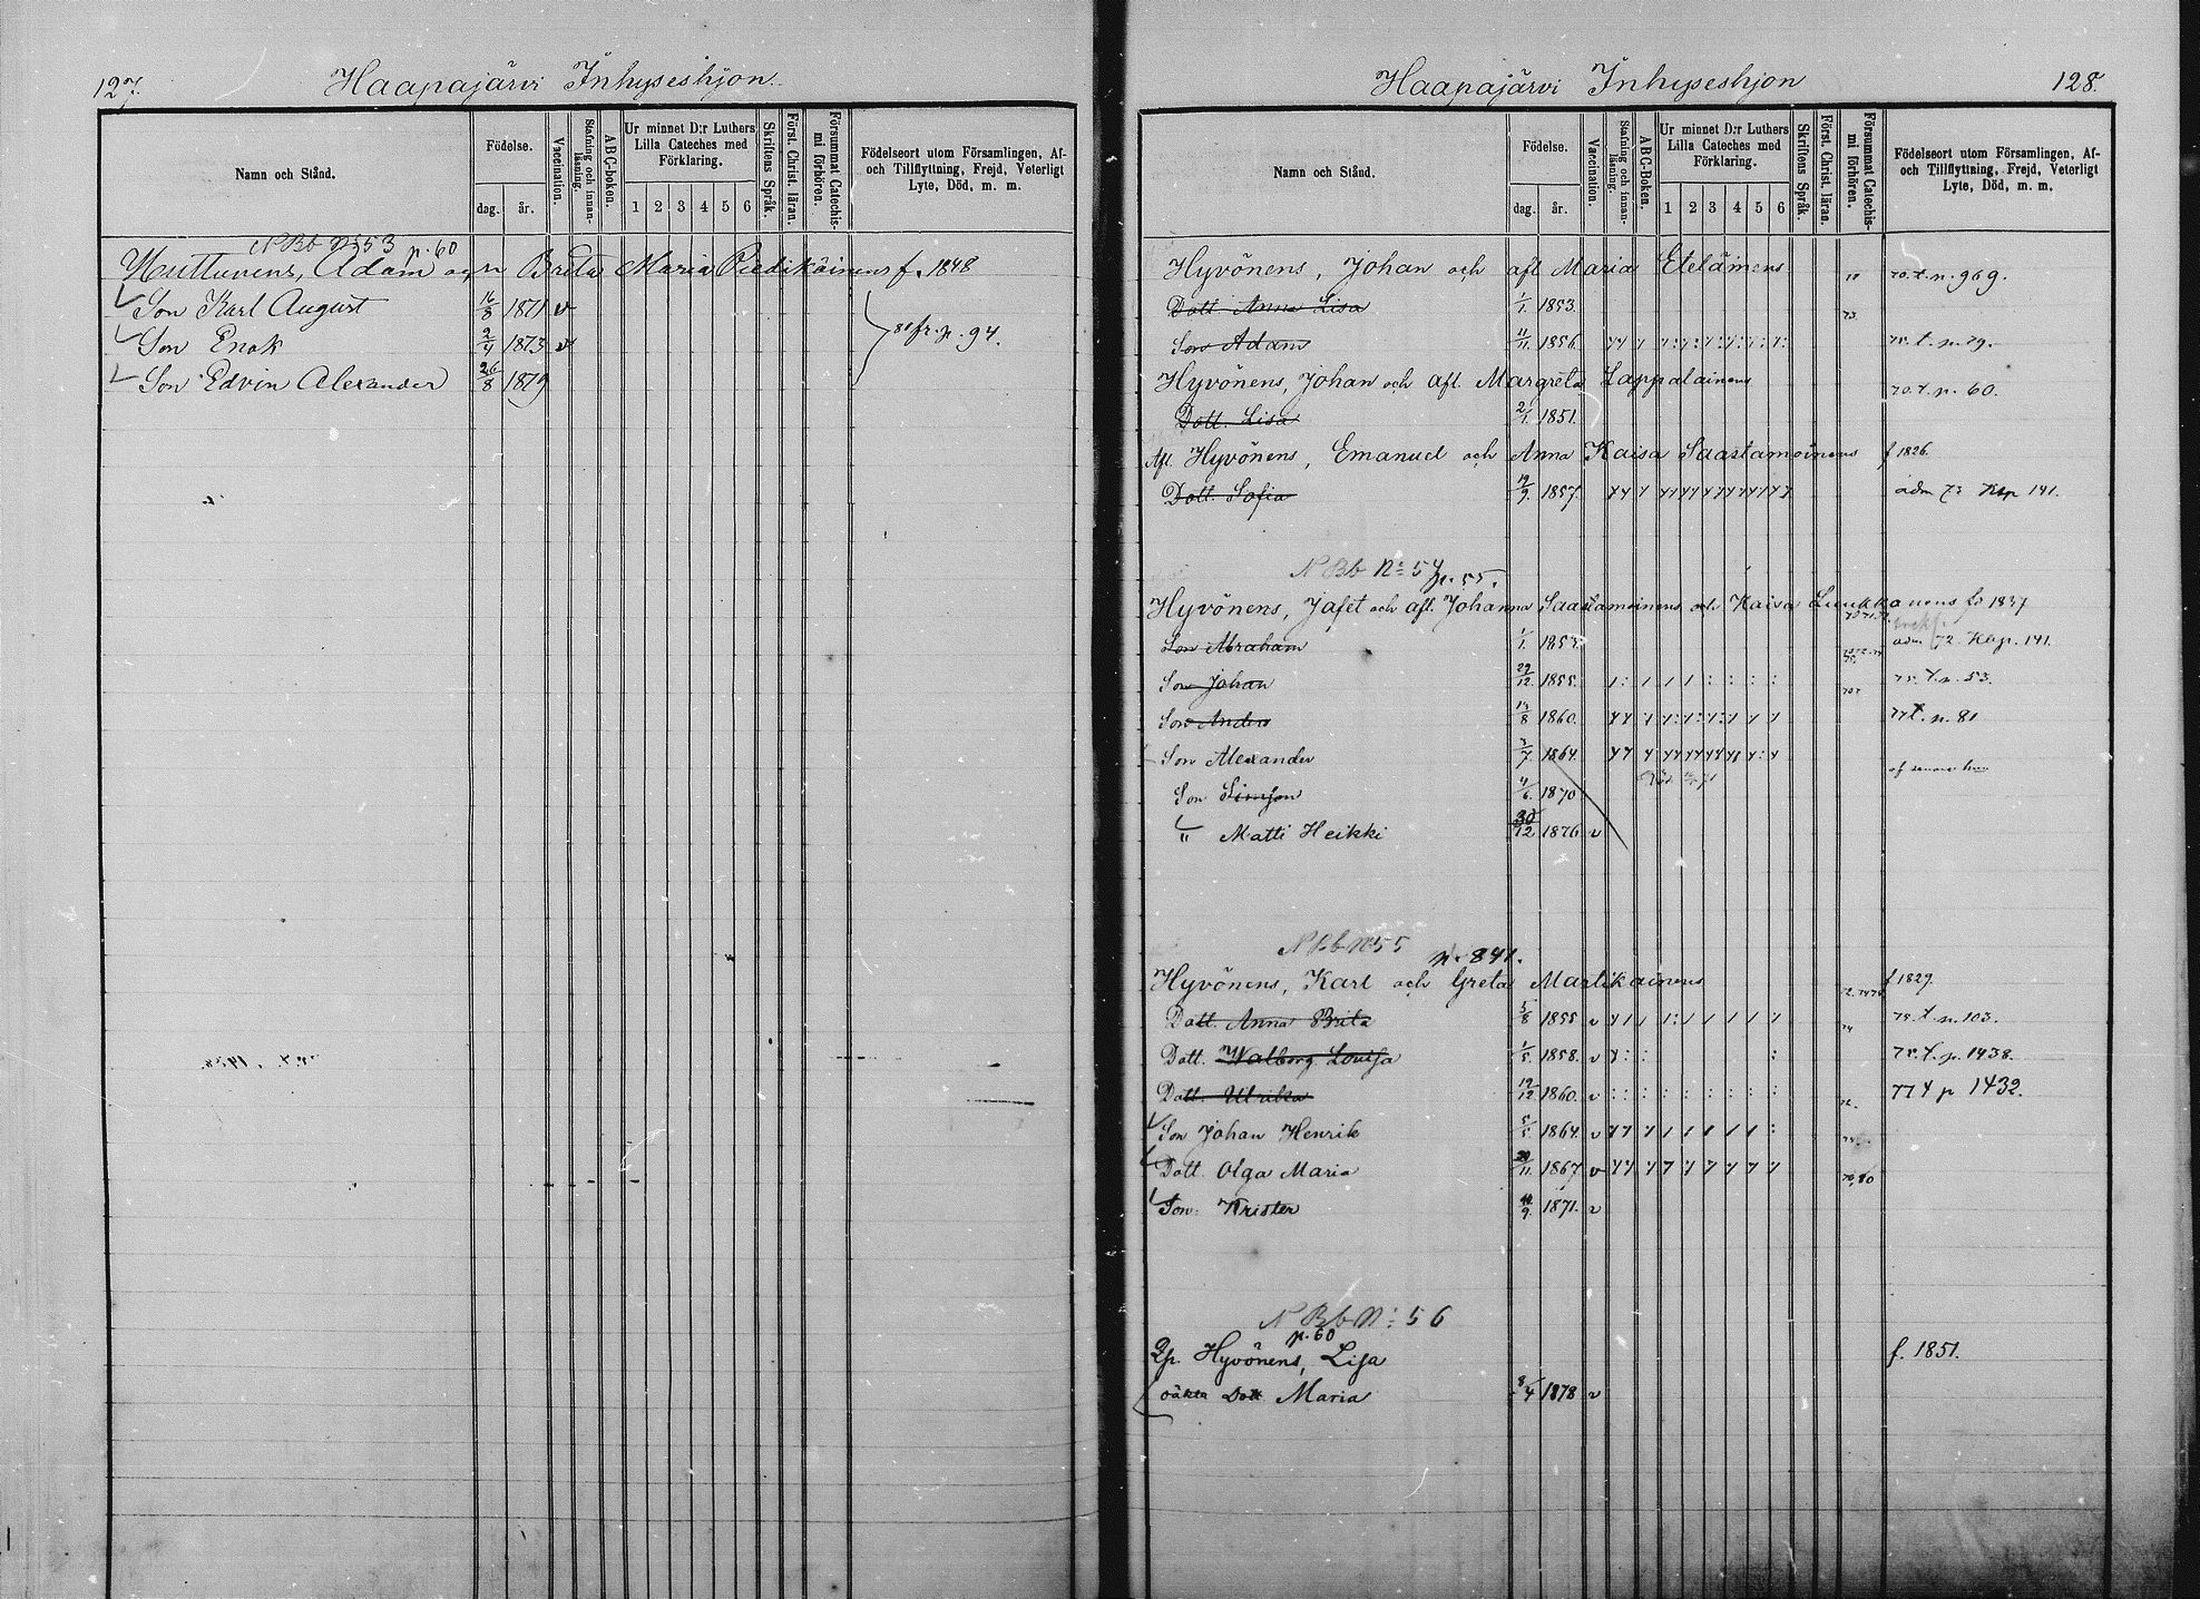 127. Haapajärvi Inhyseshjon.
Namn och Stånd.
Födelse.
dag. år.
Vaccination.
Stafning och innanläsning.
ABC-boken.
Ur minnet D:r Luthers Lilla Cateches med Förklaring.
1 2 3 4 5 6
Skriftens Språk.
Först. Christ. läran.
Försummat Catechismi förhören.
Födelseort utom Församlingen, Af- och Tillflyttning, Frejd, Veterligt Lyte, Död, m. m.
N Bb No 53 p. 60
Huttunens, Adam och Brita Maria Piedikäinens f. 1848
Son Karl August 16/8 1871 v
Son Enok 2/4 1873 v 80 fr. p. 94.
Son Edvin Alexander 26/8 1879
Haapajärvi Inhyseshjon 128.
Namn och Stånd.
Födelse.
dag. år.
Vaccination.
Stafning och innanläsning.
ABC-Boken.
Ur minnet D:r Luthers Lilla Cateches med Förklaring.
1 2 3 4 5 6
Skriftens Språk.
Först. Christ. läran.
Försummat Catechismi förhören.
Födelseort utom Församlingen, Af- och Tillflyttning, Frejd, Veterligt Lyte, Död, m. m.
Hyvönens, Johan och afl Maria Eteläinens
Dott Anna Lisa 1/1. 1853. 70. t. p. 969.
Son Adam 11/11. 1856. 75. t. p. 79.
Hyvönens, Johan och afl. Margreta Lappalainens
Dott. Lisa 2/1. 1851. 70. t. p. 60.
Afl. Hyvönens, Emanuel och Anna Kaisa Saastamoinens f 1826.
Dott. Sofia 19/9. 1857. adm 73 Klp 141.
N Bb No 54 p. 55.
Hyvönens, Jafet och afl. Johanna Saastamoinens och Kaisa Luukkanens fö 1837
Son Abraham 1/1. 1853. adm 72. Klp. 141.
Son Johan 29/12. 1855. 75. t. p. 53.
Son Anders 13/8 1860. 77 t. p. 81
Son Alexander 3/7. 1864.
Son Simson 4/6. 1870
" Matti Heikki 30/12 1876 v
N Bb No 55 p. 841.
Hyvönens, Karl och Greta Martikainens f 1829.
Dott. Anna Brita 5/8 1855 v 75. t. p. 103.
Dott. Walborg Lovisa 1/5. 1858. v 75. t. p. 1438.
Dott. Ulrika 19/12 1860. v 77 t p 1432.
Son Johan Henrik 5/5 1864. v
Dott. Olga Maria 20/11. 1867. v 80
Son Krister 1871. v
N Bb No 56
p. 60
Qp. Hyvönens, Lisa f. 1851.
oäkta Dott Maria 8/4 1878 v